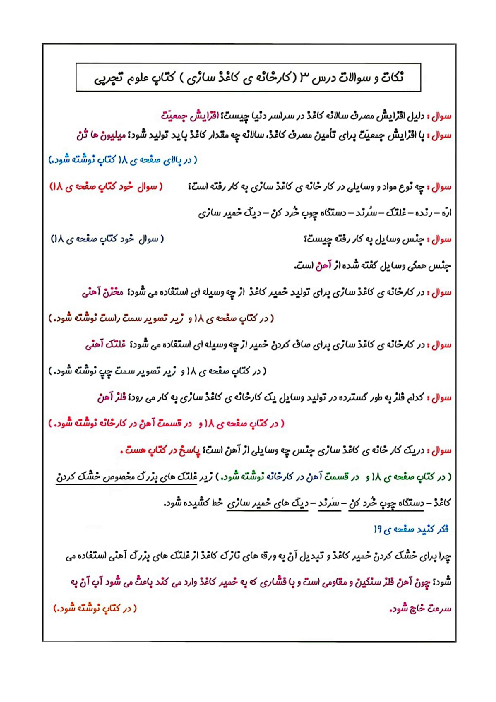 نکات و سوالات درس ۳ (کارخانه ی کاغذ سازی) کتاب علوم تجربی
سوال : دلیل افزایش مصرف سالانه کاغذ در سراسر دنیا چیست؟ افزایش جمعیّت
سوال : با افزایش جمعیّت برای تأمین مصرف کاغذ، سالانه چه مقدار کاغذ باید تولید شود؟ میلیون ها تُن
( در بالای صفحه ی ۱۸ کتاب نوشته شود.)
سوال : چه نوع مواد و وسایلی در کار خانه ی کاغذ سازی به کار رفته است؟ ( سوال خود کتاب صفحه ی ۱۸)
ارّه – رنده – غلتک – سَرَند – دستگاه چوب خُرد کن – دیگ خمیر سازی
سوال : جنس وسایل به کار رفته چیست؟ ( سوال خود کتاب صفحه ی ۱۸)
جنس همگی وسایل گفته شده از آهن است.
سوال : در کارخانه ی کاغذ سازی برای تولید خمیر کاغذ از چه وسیله ای استفاده می شود؟ مخزن آهنی
( در کتاب صفحه ی ۱۸ و زیر تصویر سمت راست نوشته شود.)
سوال : در کارخانه ی کاغذ سازی برای صاف کردن خمیر از چه وسیله ای استفاده می شود؟ غلتک آهنی
( در کتاب صفحه ی ۱۸ و زیر تصویر سمت چپ نوشته شود.)
سوال : کدام فلز به طور گسترده در تولید وسایل یک کارخانه ی کاغذ سازی به کار می رود؟ فلز آهن
( در کتاب صفحه ی ۱۸ و در قسمت آهن در کارخانه نوشته شود.)
سوال : دریک کار خانه ی کاغذ سازی جنس چه وسایلی از آهن است؟ پاسخ در کتاب هست .
( در کتاب صفحه ی ۱۸ و در قسمت آهن در کارخانه نوشته شود.) زیر غلتک های بزرگ مخصوص خشک کردن
کاغذ – دستگاه چوب خُرد کن – سَرَند – دیگ های خمیر سازی خط کشیده شود.
فکر کنید صفحه ی ۱۹
چرا برای خشک کردن خمیر کاغذ و تبدیل آن به ورق های نازک کاغذ از غلتک های بزرگ آهنی استفاده می
شود؟ چون آهن فلز سنگین و مقاومی است و با فشاری که به خمیر کاغذ وارد می کند باعث می شود آب آن به
سرعت خارج شود. ( در کتاب نوشته شود.)